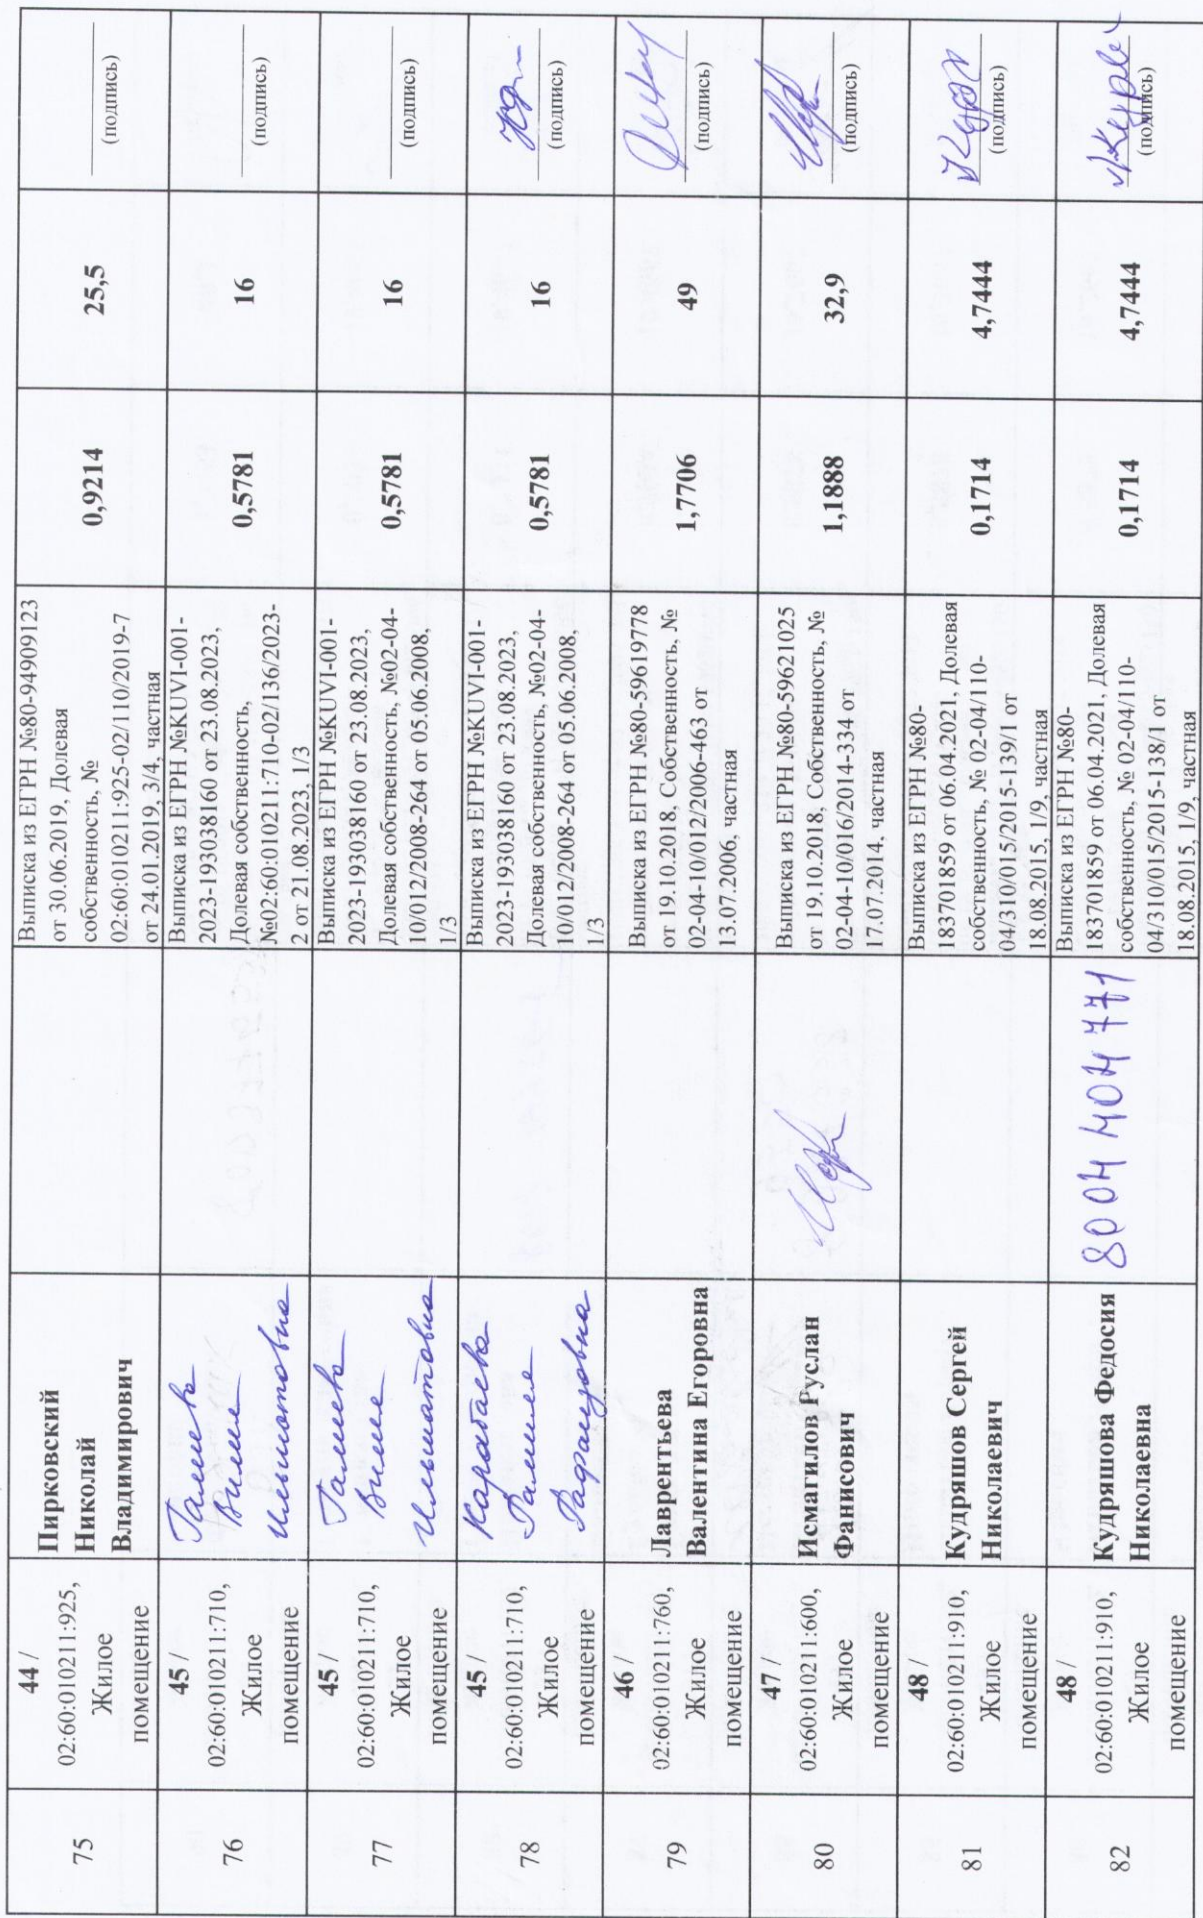 75
44 /
02:60:010211:925,
Жилое
помещение
Пирковский
Николай
Владимирович
Выписка из ЕГРН №80-94909123
от 30.06.2019, Долевая
собственность, №
02:60:010211:925-02/110/2019-7
от 24.01.2019, 3/4, частная
0,9214
25,5
(подпись)
76
45 /
02:60:010211:710,
Жилое
помещение
Галиева
Выписка из ЕГРН №KUVI-001-
2023-193038160 от 23.08.2023,
Долевая собственность,
№02:60:010211:710-02/136/2023-
2 от 21.08.2023, 1/3
0,5781
16
(подпись)
77
45 /
02:60:010211:710,
Жилое
помещение
Галиева
Выписка из ЕГРН №KUVI-001-
2023-193038160 от 23.08.2023,
Долевая собственность, №02-04-
10/012/2008-264 от 05.06.2008,
1/3
0,5781
16
(подпись)
78
45 /
02:60:010211:710,
Жилое
помещение
Карабаева
Выписка из ЕГРН №KUVI-001-
2023-193038160 от 23.08.2023,
Долевая собственность, №02-04-
10/012/2008-264 от 05.06.2008,
1/3
0,5781
16
(подпись)
79
46 /
02:60:010211:760,
Жилое
помещение
Лаврентьева
Валентина Егоровна
Выписка из ЕГРН №80-59619778
от 19.10.2018, Собственность, №
02-04-10/012/2006-463 от
13.07.2006, частная
1,7706
49
(подпись)
80
47 /
02:60:010211:600,
Жилое
помещение
Исмагилов Руслан
Фанисович
Выписка из ЕГРН №80-59621025
от 19.10.2018, Собственность, №
02-04-10/016/2014-334 от
17.07.2014, частная
1,1888
32,9
(подпись)
81
48 /
02:60:010211:910,
Жилое
помещение
Кудряшов Сергей
Николаевич
Выписка из ЕГРН №80-
183701859 от 06.04.2021, Долевая
собственность, № 02-04/110-
04/310/015/2015-139/1 от
18.08.2015, 1/9, частная
0,1714
4,7444
(подпись)
82
48 /
02:60:010211:910,
Жилое
помещение
Кудряшова Федосия
Николаевна
8004 404 771
Выписка из ЕГРН №80-
183701859 от 06.04.2021, Долевая
собственность, № 02-04/110-
04/310/015/2015-138/1 от
18.08.2015, 1/9, частная
0,1714
4,7444
(подпись)